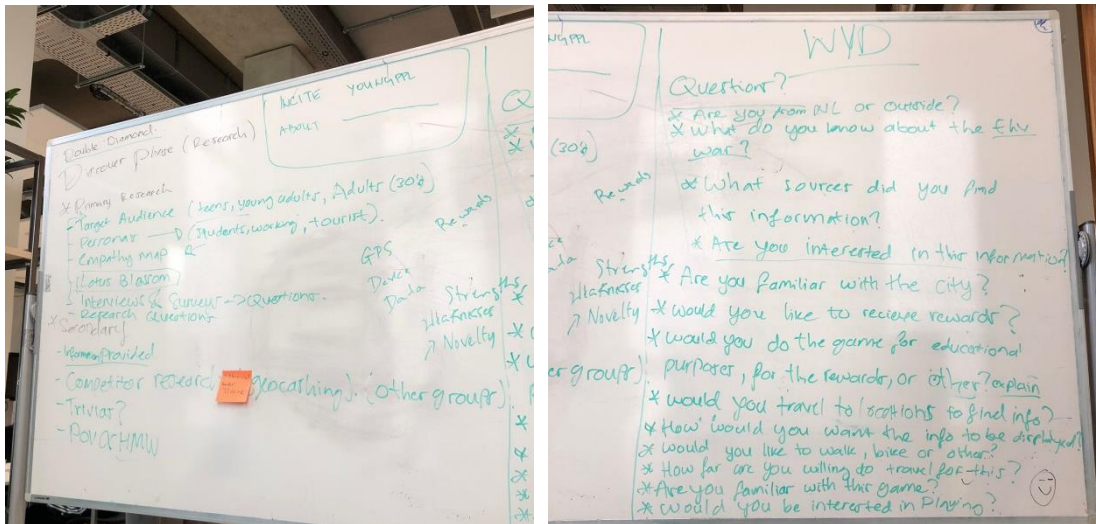 INCITE YOUNGPPL
ABOUT
Double Diamond.
Discover Phase (Research)
* Primary Research
- Target Audience (teens, young adults, Adults (30's)
- Personas → (students, working, tourist).
- Empathy map
- Lotus Blossom
- Interviews & Surveys -> Questions.
- Research Questions
* Secondary
- Provided
- Competitor research (geocaching). (other groups)
- Trivias?
- POV & HMW
Rewards
GPS
Device
Strengths
Weaknesses
Novelty
WYD
Questions?
* Are you from NL or outside?
* What do you know about the Ehv
war?
* What sources did you find
this information?
* Are you interested in this information?
* Are you familiar with the city?
* would you like to recieve rewards?
* would you do the game for educational
purposes, for the rewards, or other? explain
* would you travel to locations to find info?
* How would you want the info to be displayed?
* would you like to walk, bike or other?
* How far are you willing to travel for this?
* Are you familiar with this game?
* would you be interested in Playing?
(30's)
Rewards
Strengths
Weaknesses
Novelty
er groups)